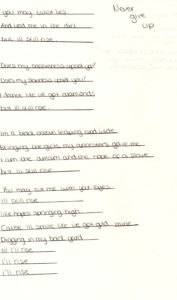 Never
give
up
you may twist lies
And trod me in the dirt
but ill still rise
Does my sassiness upset you?
Does my
upset you?
I dance like ive got diamonds
but ill still rise
Im a black ocean leaping and wide
Bringing the gifts my ancestors gave me
I am the dream and the hope of a slave
but ill still rise
You may cut me with your eyes
ill still rise
like hopes springing high
Cause ill smile like ive got gold mine
Digging in my back yard
ill rise
I'll rise
I'll rise